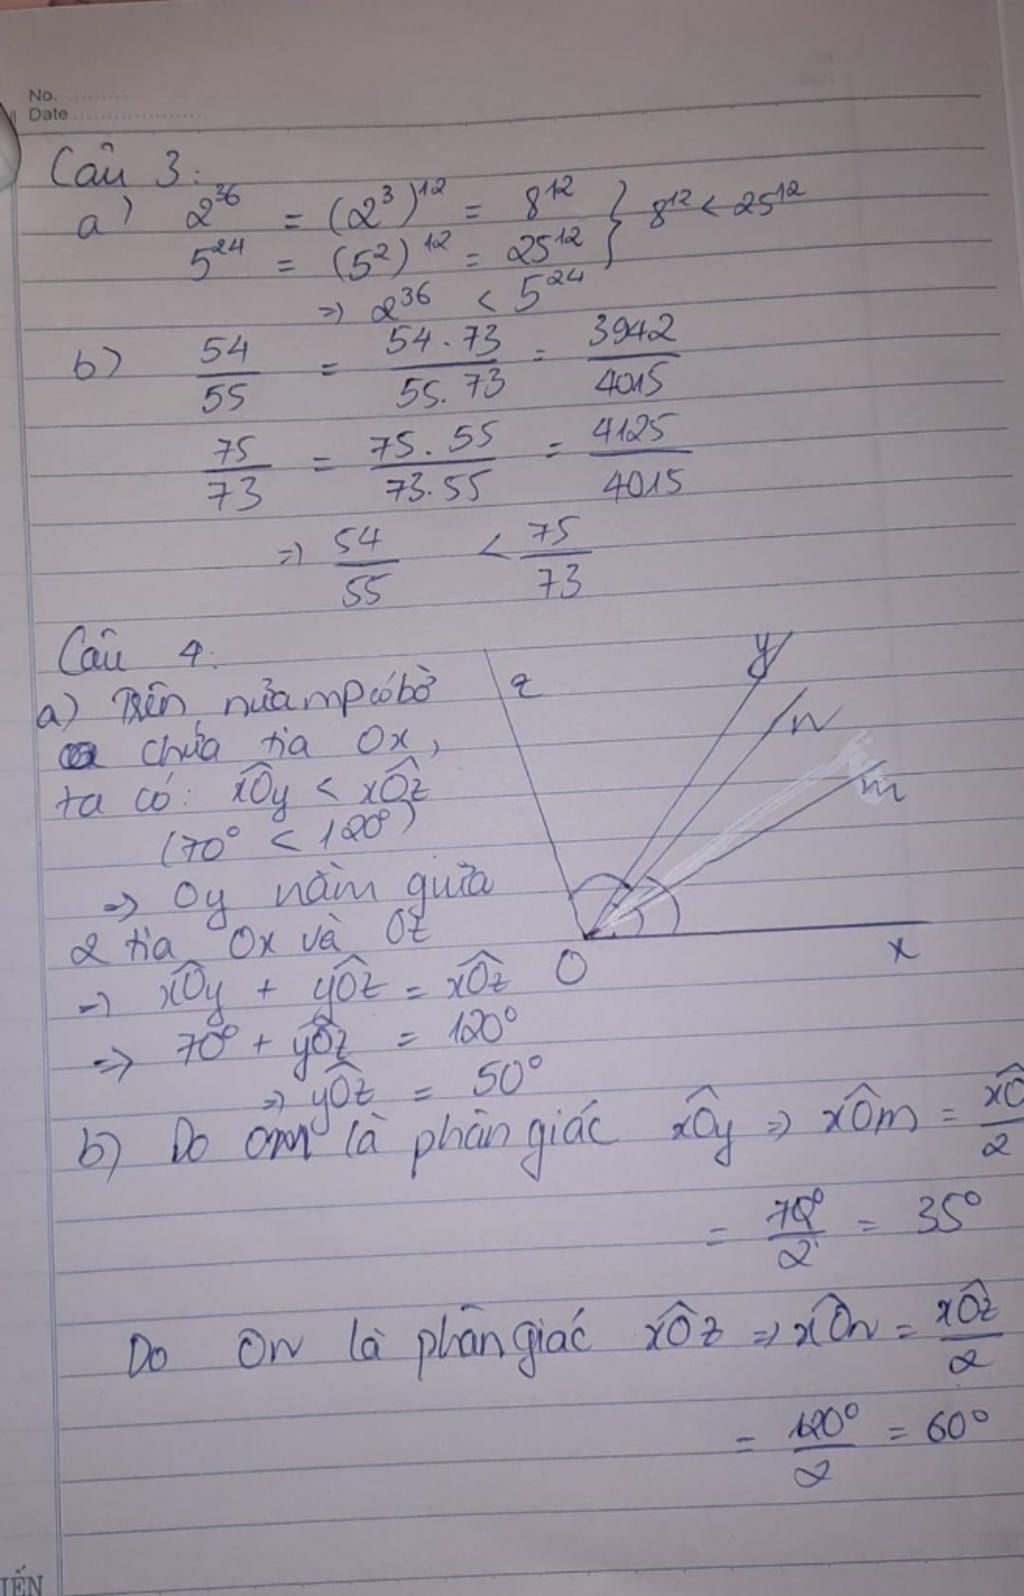 No. ..........
Date ....................
Câu 3:
a) 2^36 = (2^3)^12 = 8^12 } 8^12 < 25^12
5^24 = (5^2)^12 = 25^12
=> 2^36 < 5^24
b) 54/55 = 54.73/55.73 = 3942/4015
75/73 = 75.55/73.55 = 4125/4015
=> 54/55 < 75/73
Câu 4:
a) Trên nửa mp có bờ
chứa tia Ox,
ta có: xÔy < xÔz
(70° < 120°)
=> Oy nằm giữa
2 tia Ox và Oz
=> xÔy + yÔz = xÔz
=> 70° + yÔz = 120°
=> yÔz = 50°
z
y
n
m
x
O
b) Do Om là phân giác xÔy => xÔm = xÔ/2
= 70°/2 = 35°
Do On là phân giác xÔz => xÔn = xÔz/2
= 120°/2 = 60°
IẾN